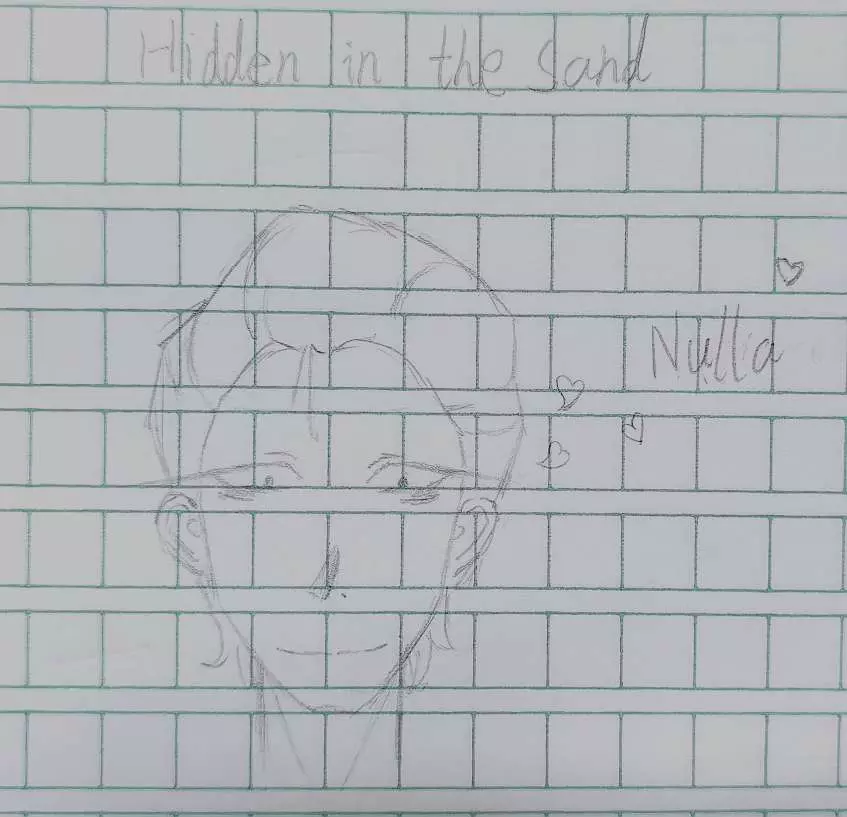 Hidden in the Sand
Nulla